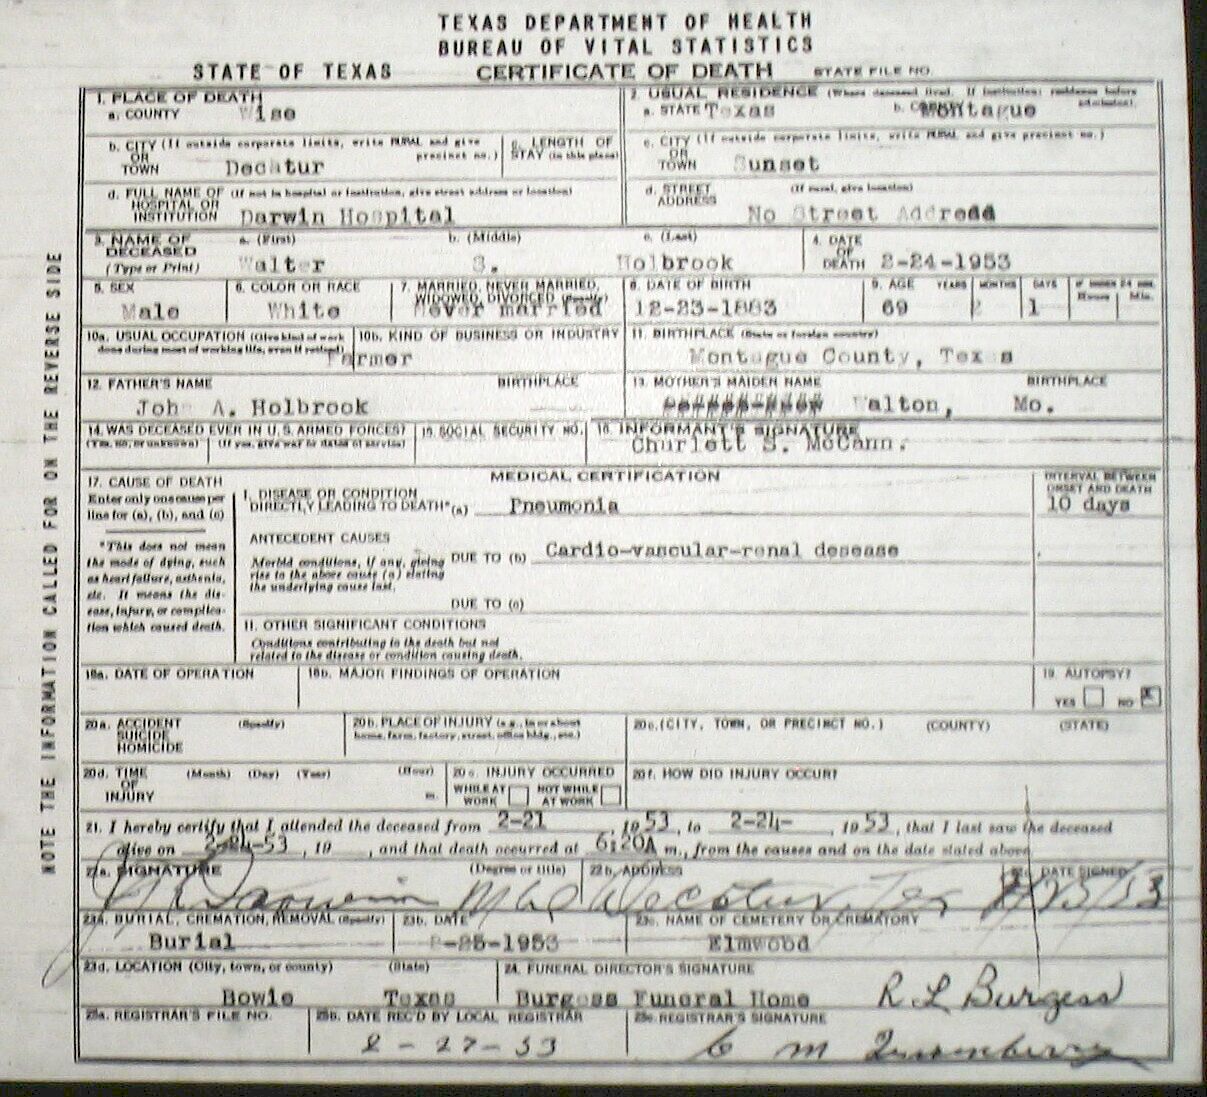 TEXAS DEPARTMENT OF HEALTH
BUREAU OF VITAL STATISTICS
STATE OF TEXAS CERTIFICATE OF DEATH STATE FILE NO.
NOTE THE INFORMATION CALLED FOR ON THE REVERSE SIDE
1. PLACE OF DEATH
a. COUNTY Wise
2. USUAL RESIDENCE (Where deceased lived. If institution: residence before admission).
a. STATE Texas b. COUNTY Montague
b. CITY (If outside corporate limits, write RURAL and give precinct no.)
OR
TOWN Decatur
c. LENGTH OF
STAY (in this place)
c. CITY (If outside corporate limits, write RURAL and give precinct no.)
OR
TOWN Sunset
d. FULL NAME OF (If not in hospital or institution, give street address or location)
HOSPITAL OR
INSTITUTION Darwin Hospital
d. STREET (If rural, give location)
ADDRESS
No Street Address
3. NAME OF a. (First) b. (Middle) c. (Last)
DECEASED
(Type or Print) Walter S. Holbrook
4. DATE
OF
DEATH 2-24-1953
5. SEX
Male
6. COLOR OR RACE
White
7. MARRIED, NEVER MARRIED,
WIDOWED, DIVORCED (Specify)
Never married
8. DATE OF BIRTH
12-23-1883
9. AGE YEARS MONTHS DAYS IF UNDER 24 HRS.
Hours Min.
69 2 1
10a. USUAL OCCUPATION (Give kind of work
done during most of working life, even if retired)
Farmer
10b. KIND OF BUSINESS OR INDUSTRY
11. BIRTHPLACE (State or foreign country)
Montague County, Texas
12. FATHER'S NAME BIRTHPLACE
John A. Holbrook
13. MOTHER'S MAIDEN NAME BIRTHPLACE
Walton, Mo.
14. WAS DECEASED EVER IN U.S. ARMED FORCES?
(Yes, no, or unknown) (If yes, give war or dates of service)
15. SOCIAL SECURITY NO.
16. INFORMANT'S SIGNATURE
Churlett S. McCann.
MEDICAL CERTIFICATION
17. CAUSE OF DEATH
Enter only one cause per
line for (a), (b), and (c)
*This does not mean
the mode of dying, such
as heart failure, asthenia,
etc. It means the dis-
ease, injury, or complica-
tion which caused death.
I. DISEASE OR CONDITION
DIRECTLY LEADING TO DEATH*(a) Pneumonia
INTERVAL BETWEEN
ONSET AND DEATH
10 days
ANTECEDENT CAUSES
Morbid conditions, if any, giving
rise to the above cause (a) stating
the underlying cause last.
DUE TO (b) Cardio-vascular-renal desease
DUE TO (c)
II. OTHER SIGNIFICANT CONDITIONS
Conditions contributing to the death but not
related to the disease or condition causing death.
18a. DATE OF OPERATION
18b. MAJOR FINDINGS OF OPERATION
19. AUTOPSY?
YES NO X
20a. ACCIDENT (Specify)
SUICIDE
HOMICIDE
20b. PLACE OF INJURY (e.g., in or about
home, farm, factory, street, office bldg., etc.)
20c. (CITY, TOWN, OR PRECINCT NO.) (COUNTY) (STATE)
20d. TIME (Month) (Day) (Year) (Hour)
OF
INJURY m.
20e. INJURY OCCURRED
WHILE AT WORK NOT WHILE AT WORK
20f. HOW DID INJURY OCCUR?
21. I hereby certify that I attended the deceased from 2-21, 1953, to 2-24-, 1953, that I last saw the deceased
alive on 2-24-53, 19 , and that death occurred at 6:20A m., from the causes and on the date stated above
22a. SIGNATURE (Degree or title) 22b. ADDRESS 22c. DATE SIGNED
Darwin Decatur, Tex 2/25/53
23a. BURIAL, CREMATION, REMOVAL (Specify)
Burial
23b. DATE
2-25-1953
23c. NAME OF CEMETERY OR CREMATORY
Elmwood
23d. LOCATION (City, town, or county) (State)
Bowie Texas
24. FUNERAL DIRECTOR'S SIGNATURE
Burgess Funeral Home R L Burgess
25a. REGISTRAR'S FILE NO.
25b. DATE REC'D BY LOCAL REGISTRAR
2-27-53
25c. REGISTRAR'S SIGNATURE
C M